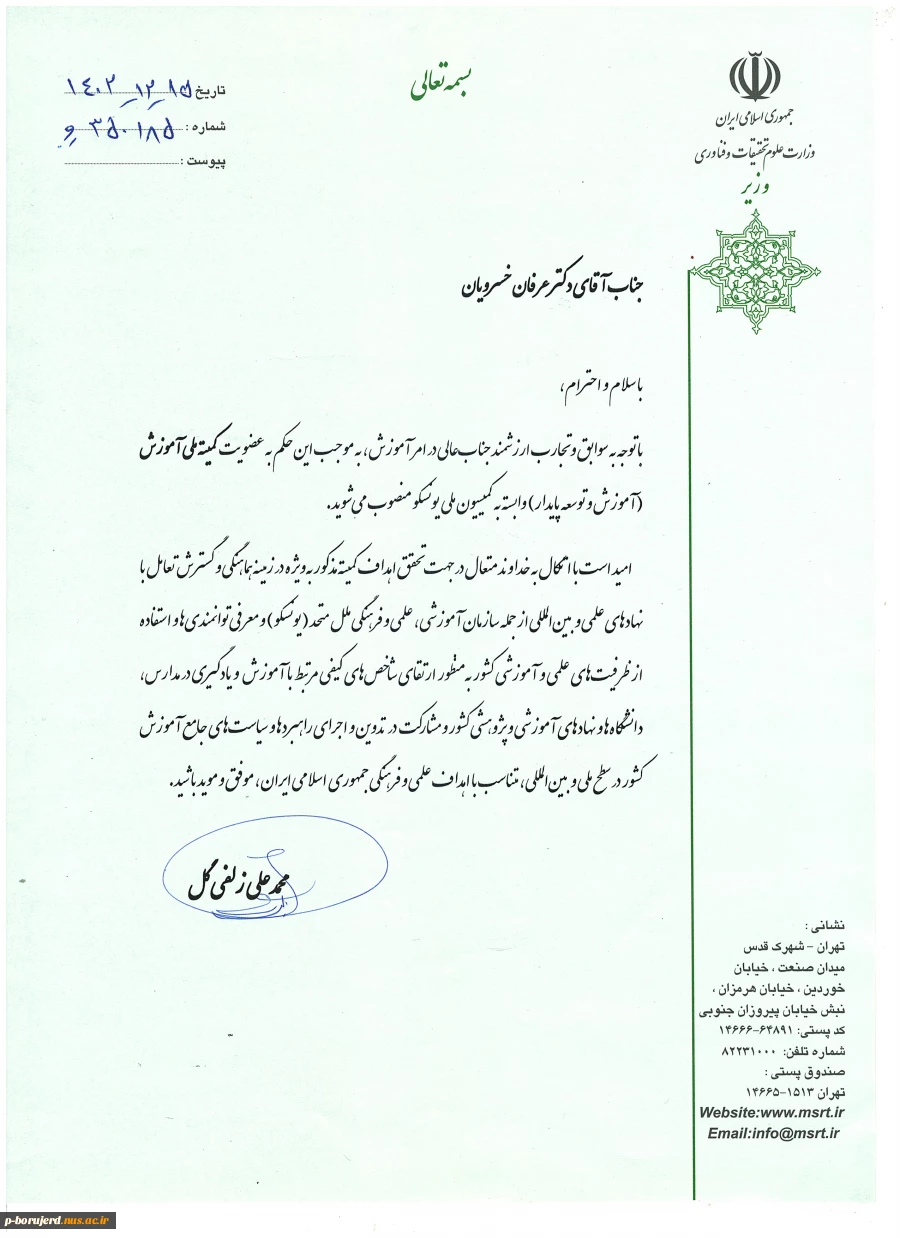 بسمه تعالی
جمهوری اسلامی ایران
وزارت علوم تحقیقات و فناوری
وزیر
تاریخ ۱۴۰۲_۱۲_۱۵
شماره : ۳۵۰۱۸۵ و
پیوست :
جناب آقای دکتر عرفان خسرویان
با سلام و احترام،
با توجه به سوابق و تجارب ارزشمند جناب‌عالی در امر آموزش، به موجب این حکم به عضویت کمیته ملی آموزش
(آموزش و توسعه پایدار) وابسته به کمیسیون ملی یونسکو منصوب می‌شوید.
امید است با اتکال به خداوند متعال در جهت تحقق اهداف کمیته مذکور به ویژه در زمینه هماهنگی و گسترش تعامل با
نهادهای علمی و بین‌المللی از جمله سازمان آموزشی، علمی و فرهنگی ملل متحد (یونسکو) و معرفی توانمندی‌ها و استفاده
از ظرفیت‌های علمی و آموزشی کشور به منظور ارتقای شاخص‌های کیفی مرتبط با آموزش و یادگیری در مدارس،
دانشگاه‌ها و نهادهای آموزشی و پژوهشی کشور و مشارکت در تدوین و اجرای راهبردها و سیاست‌های جامع آموزش
کشور در سطح ملی و بین‌المللی، متناسب با اهداف علمی و فرهنگی جمهوری اسلامی ایران، موفق و موید باشید.
محمدعلی زلفی گل
نشانی :
تهران - شهرک قدس
میدان صنعت ، خیابان
خوردین ، خیابان هرمزان ،
نبش خیابان پیروزان جنوبی
کد پستی: ۶۴۸۹۱-۱۴۶۶۶
شماره تلفن: ۸۲۲۳۱۰۰۰
صندوق پستی :
تهران ۱۵۱۳-۱۴۶۶۵
Website:www.msrt.ir
Email:info@msrt.ir
p-borujerd.nus.ac.ir